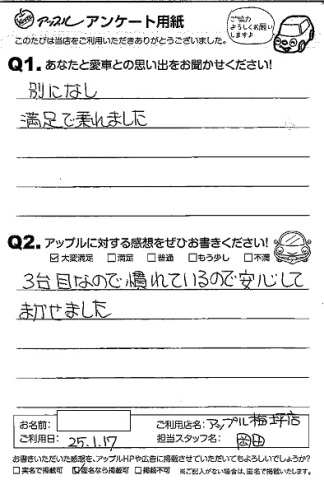 アップル アンケート用紙
ご協力
よろしくお願い
します♪
このたびは当店をご利用いただきありがとうございました。
Q1. あなたと愛車との思い出をお聞かせください!
別になし
満足で乗れました
Q2. アップルに対する感想をぜひお書きください!
☑大変満足 □満足 □普通 □もう少し □不満
3台目なので慣れているので安心して
まかせました
お名前:
ご利用店名: アップル梅坪店
ご利用日: 25.1.17
担当スタッフ名: 岡田
お書きいただいた感想を、アップルHPや広告に掲載させていただいてもよろしいでしょうか?
□実名で掲載可 ☑匿名なら掲載可 □掲載不可 ※ご記入がない場合は、匿名で掲載いたします。